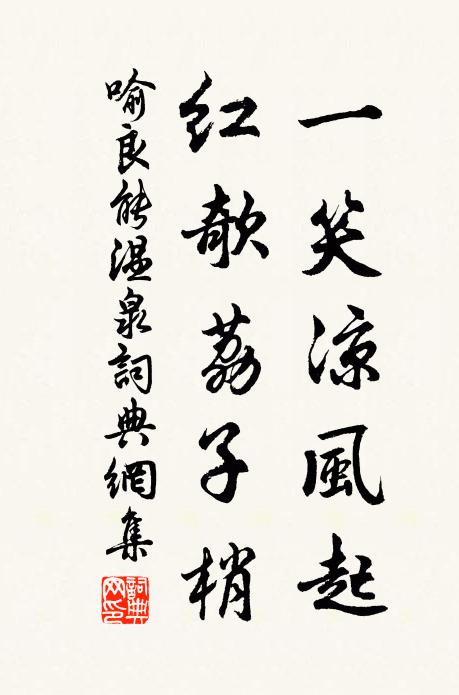 一笑涼風起
紅欹荔子梢
喻良能溫泉詞典網集
詞典網印